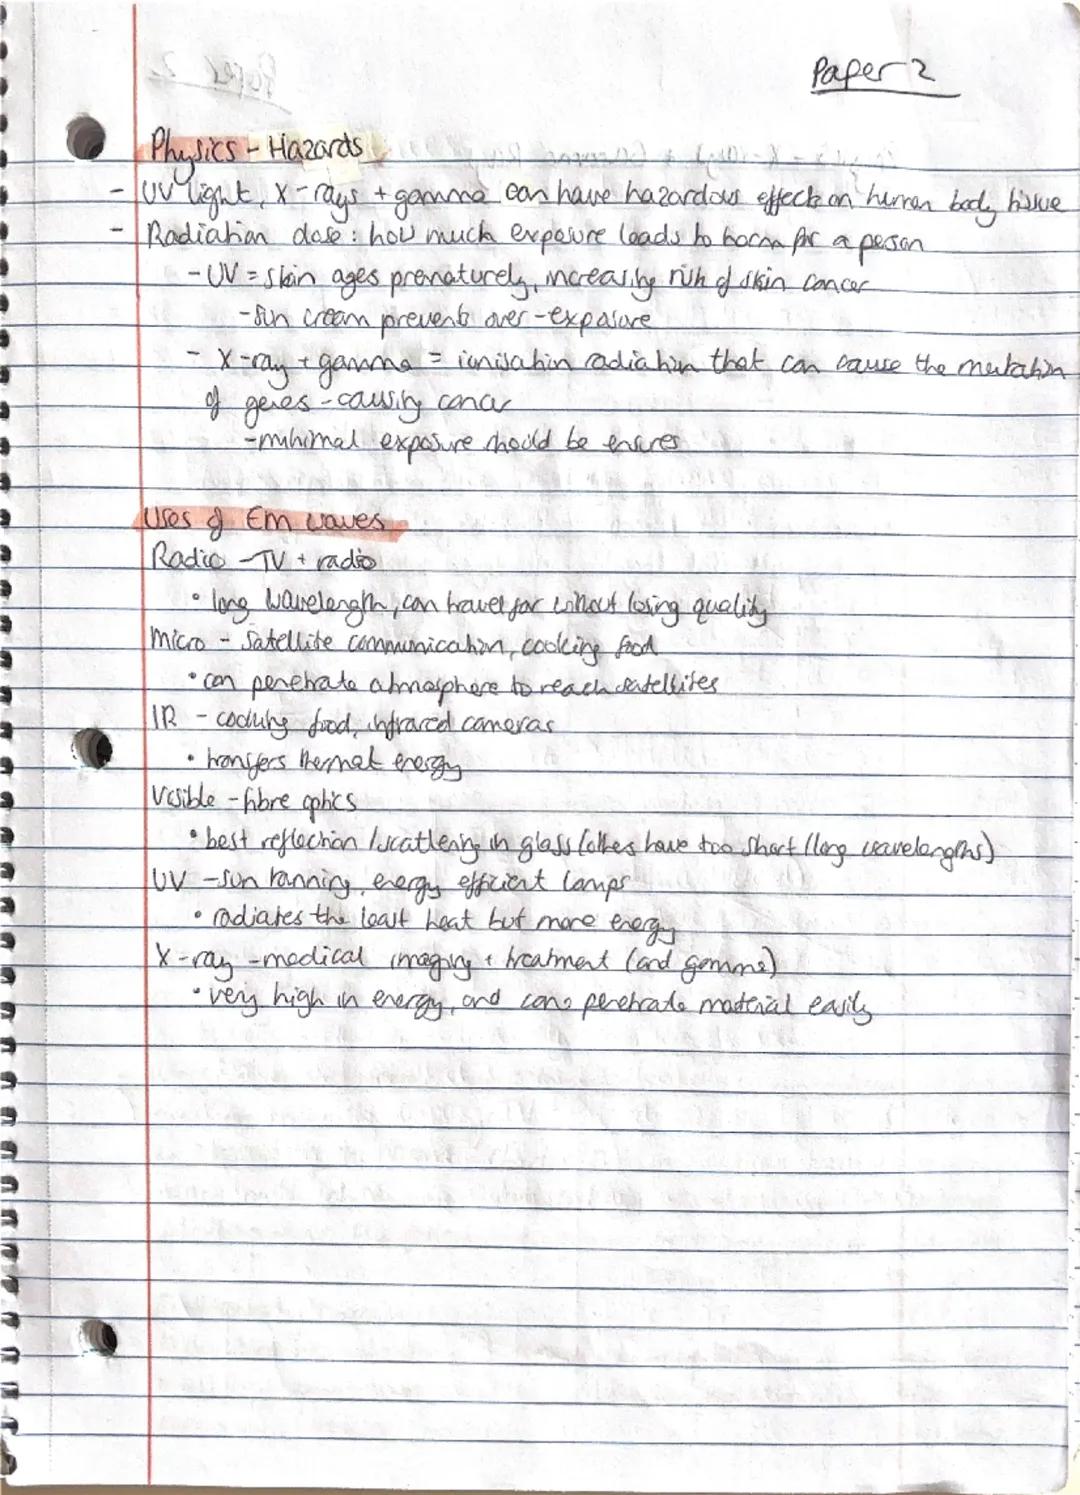 Paper 2
Physics - Hazards
- UV light, X-rays + gamma can have hazardous effects on human body tissue
- Radiation dose: how much exposure leads to harm for a person
- UV = skin ages prematurely, increasing risk of skin cancer
- sun cream prevents over-exposure
- X-ray + gamma = ionisation radiation that can cause the mutation
of genes - causing cancer
- minimal exposure should be ensures
Uses of Em waves
Radio - TV + radio
• long wavelength, can travel far without losing quality
Micro - Satellite communication, cooking food
• can penetrate atmosphere to reach satellites
IR - cooking food, infrared cameras
• transfers thermal energy
Visible - fibre optics
• best reflection / scattering in glass (others have too short / long wavelengths)
UV - sun tanning, energy efficient lamps
• radiates the least heat but more energy
X-ray - medical imaging + treatment (and gamma)
• very high in energy, and can penetrate material easily